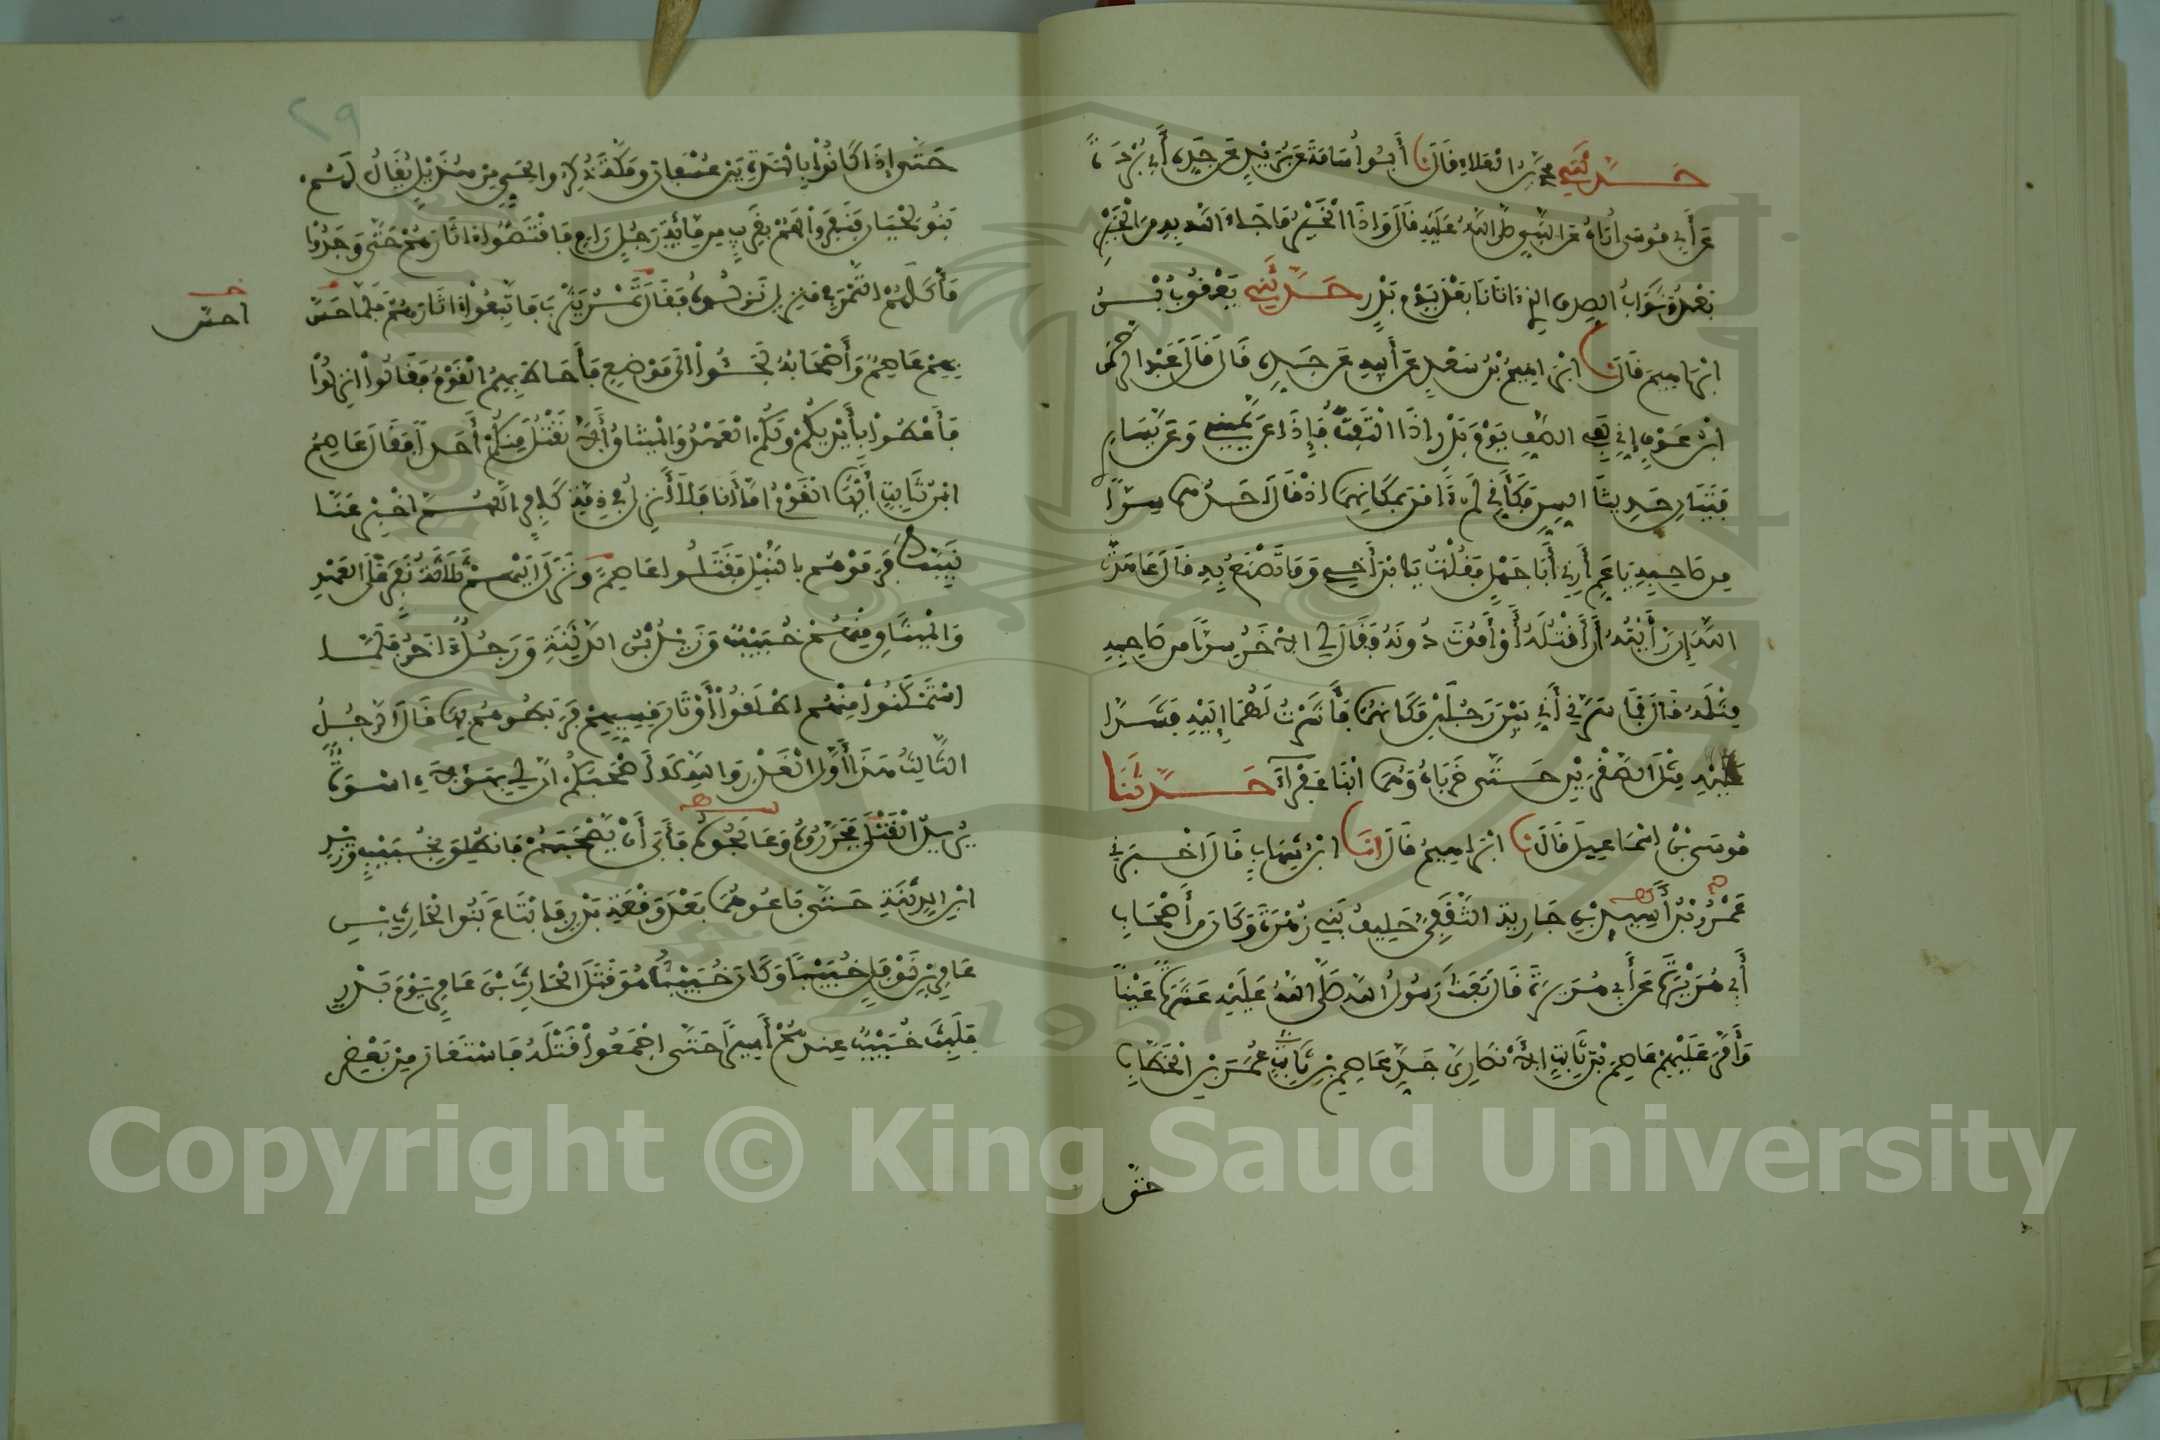 حَدَّثَنِي محمد بن العلاء قال نا أبو أسامة عن بريد عن جده أبي بردة
عن أبي موسى أراه عن النبي صلى الله عليه قال وإذا الخير ما جاء الله به من الخير
بعد وثواب الصدق الذي اتانا بعد يوم بدر حدثني يعقوب بن
ابراهيم قال نا ابراهيم بن سعد عن أبيه عن جده قال قال عبد الرحمن
ابن عوف إني لفي الصف يوم بدر إذا التفت فإذا عن يميني وعن يساري
فتيان حديثا السن فكأني لم ءامن بمكانهما إذ قال لي احدهما سرا
من صاحبه يا عم أرني أبا جهل فقلت يا ابن أخي وما تصنع به قال عاهدت
الله إن رأيته أن أقتله أو أموت دونه فقال لي الآخر سرا من صاحبه
مثله قال فما سرني أني بين رجلين مكانهما فأشرت لهما إليه فشدا
عليه مثل الصقرين حتى ضرباه وهما ابنا عفراء حدثنا
موسى بن اسماعيل قال نا ابراهيم قال انا ابن شهاب قال اخبرني
عمرو بن أسيد بن جارية الثقفي حليف بني زهرة وكان من أصحاب
أبي هريرة عن أبي هريرة قال بعث رسول الله صلى الله عليه عشرة عينا
وأمر عليهم عاصم بن ثابت الأنصاري جد عاصم بن ثابت عمر بن الخطاب
حتى
٢٩
حتى إذا كانوا بالهدة بين عسفان ومكة ذكروا لحي من هذيل يقال لهم
بنو لحيان فنفروا لهم بقريب من مائة رجل رام فاقتصوا ءاثارهم حتى وجدوا
مأكلهم التمر في منزل نزلوه فقال تمر يثرب فاتبعوا ءاثارهم فلما حس
احس
بهم عاصم وأصحابه لجئوا الى موضع فأحاط بهم القوم فقالوا انزلوا
فأعطوا بأيديكم ولكم العهد والميثاق أن لا نقتل منكم أحدا فقال عاصم
ابن ثابت أيها القوم اما أنا فلا أنزل في ذمة كافر اللهم اخبر عنا
نبيك فرموهم بالنبل فقتلوا عاصما ونزل اليهم ثلاثة نفر على العهد
والميثاق منهم خبيب وزيد بن الدثنة ورجل ءاخر فلما
استمكنوا منهم اطلقوا أوتار قسيهم فربطوهم بها قال الرجل
الثالث هذا أول الغدر والله لا أصحبكم ان لي بهؤلاء اسوة
يريد القتلى فجرروه وعالجوه فأبى أن يصحبهم فانطلق بخبيب وزيد
ابن الدثنة حتى باعوهما بعد وقعة بدر فابتاع بنوا الحارث بن
عامر بن نوفل خبيبا وكان خبيب هو قتل الحارث بن عامر يوم بدر
فلبث خبيب عندهم أسيرا حتى اجمعوا قتله فاستعار من بعض
Copyright © King Saud University
1957